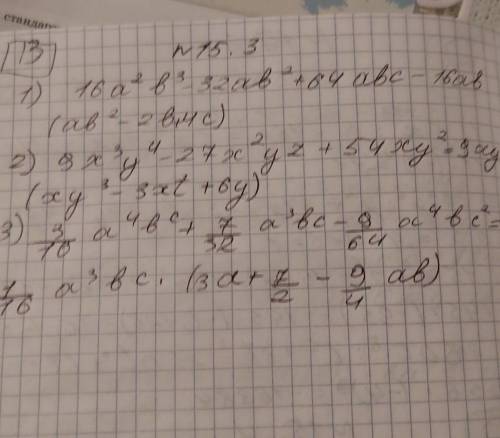 стандар
13 №15.3
1) 16a²b³-32ab²+64abc-16ab
(ab²-2b+4c)
2) 9x³y⁴-27x²yz+54xy²=9xy
(xy³-3xt+6y)
3) 3/16 a⁴bᶜ+7/32 a³bc-9/64 a⁴bc²=
1/16 a³bc·(3a+7/2-9/4 ab)